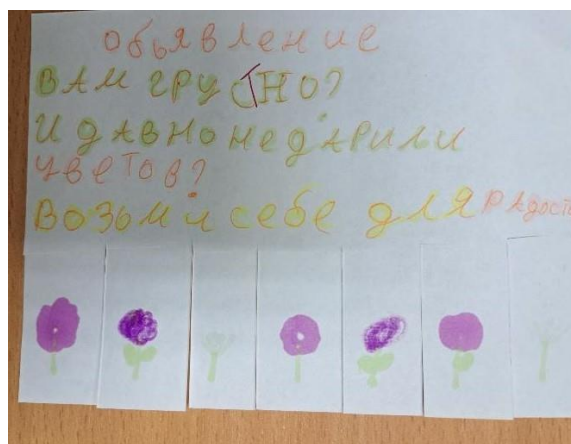 Обьявление
ВАМ ГРУСТНО?
И дАВНО НЕ дАРИЛИ
ЦВЕТОВ?
ВОЗЬМИ СЕБЕ ДЛЯ РАДОСТИ